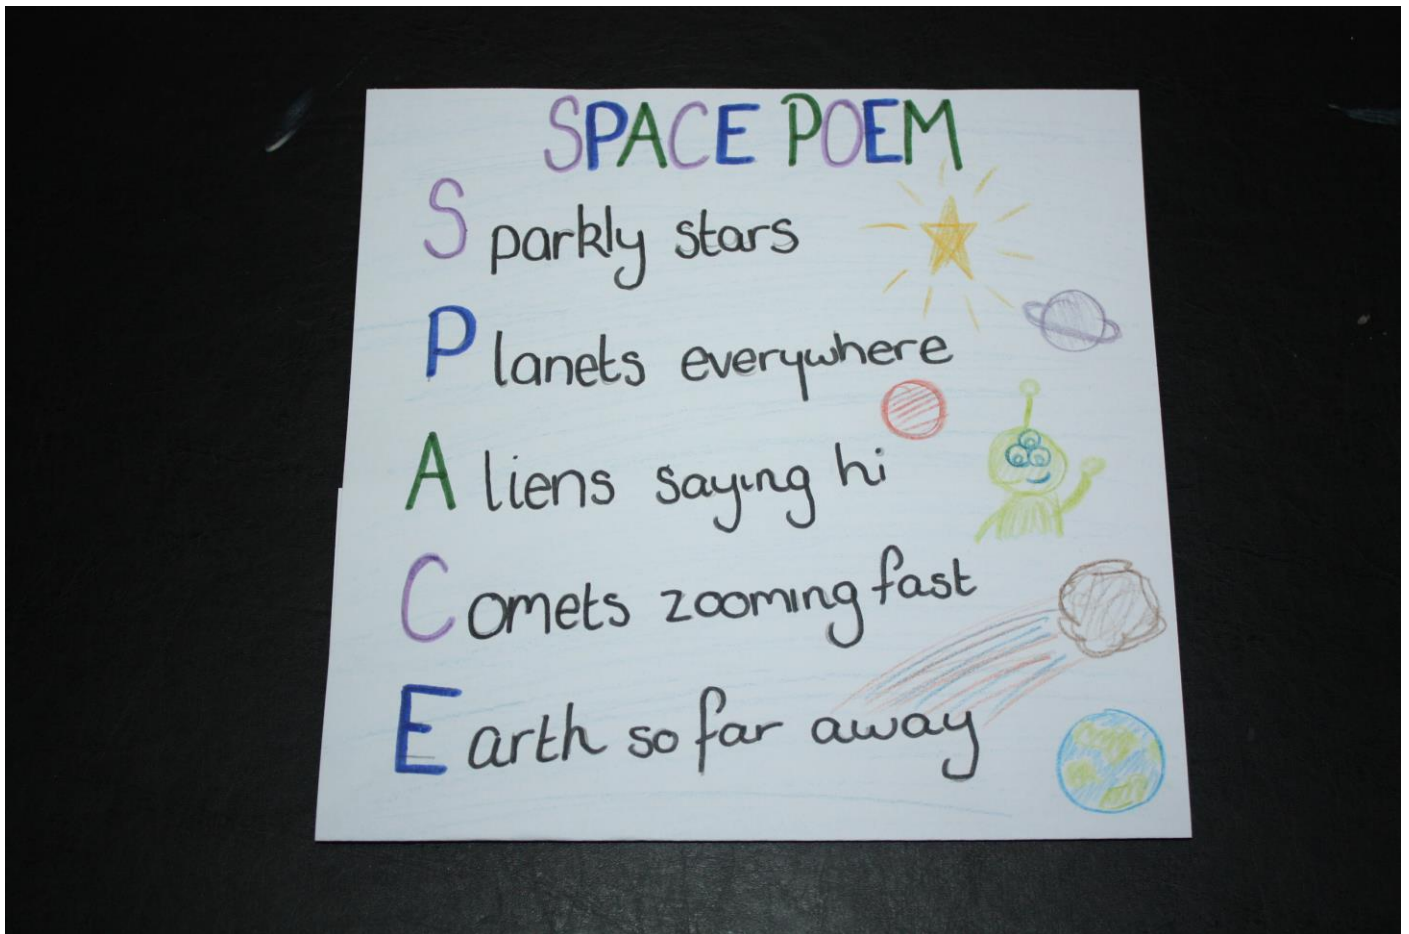 SPACE POEM
Sparkly stars
Planets everywhere
Aliens saying hi
Comets zooming fast
Earth so far away